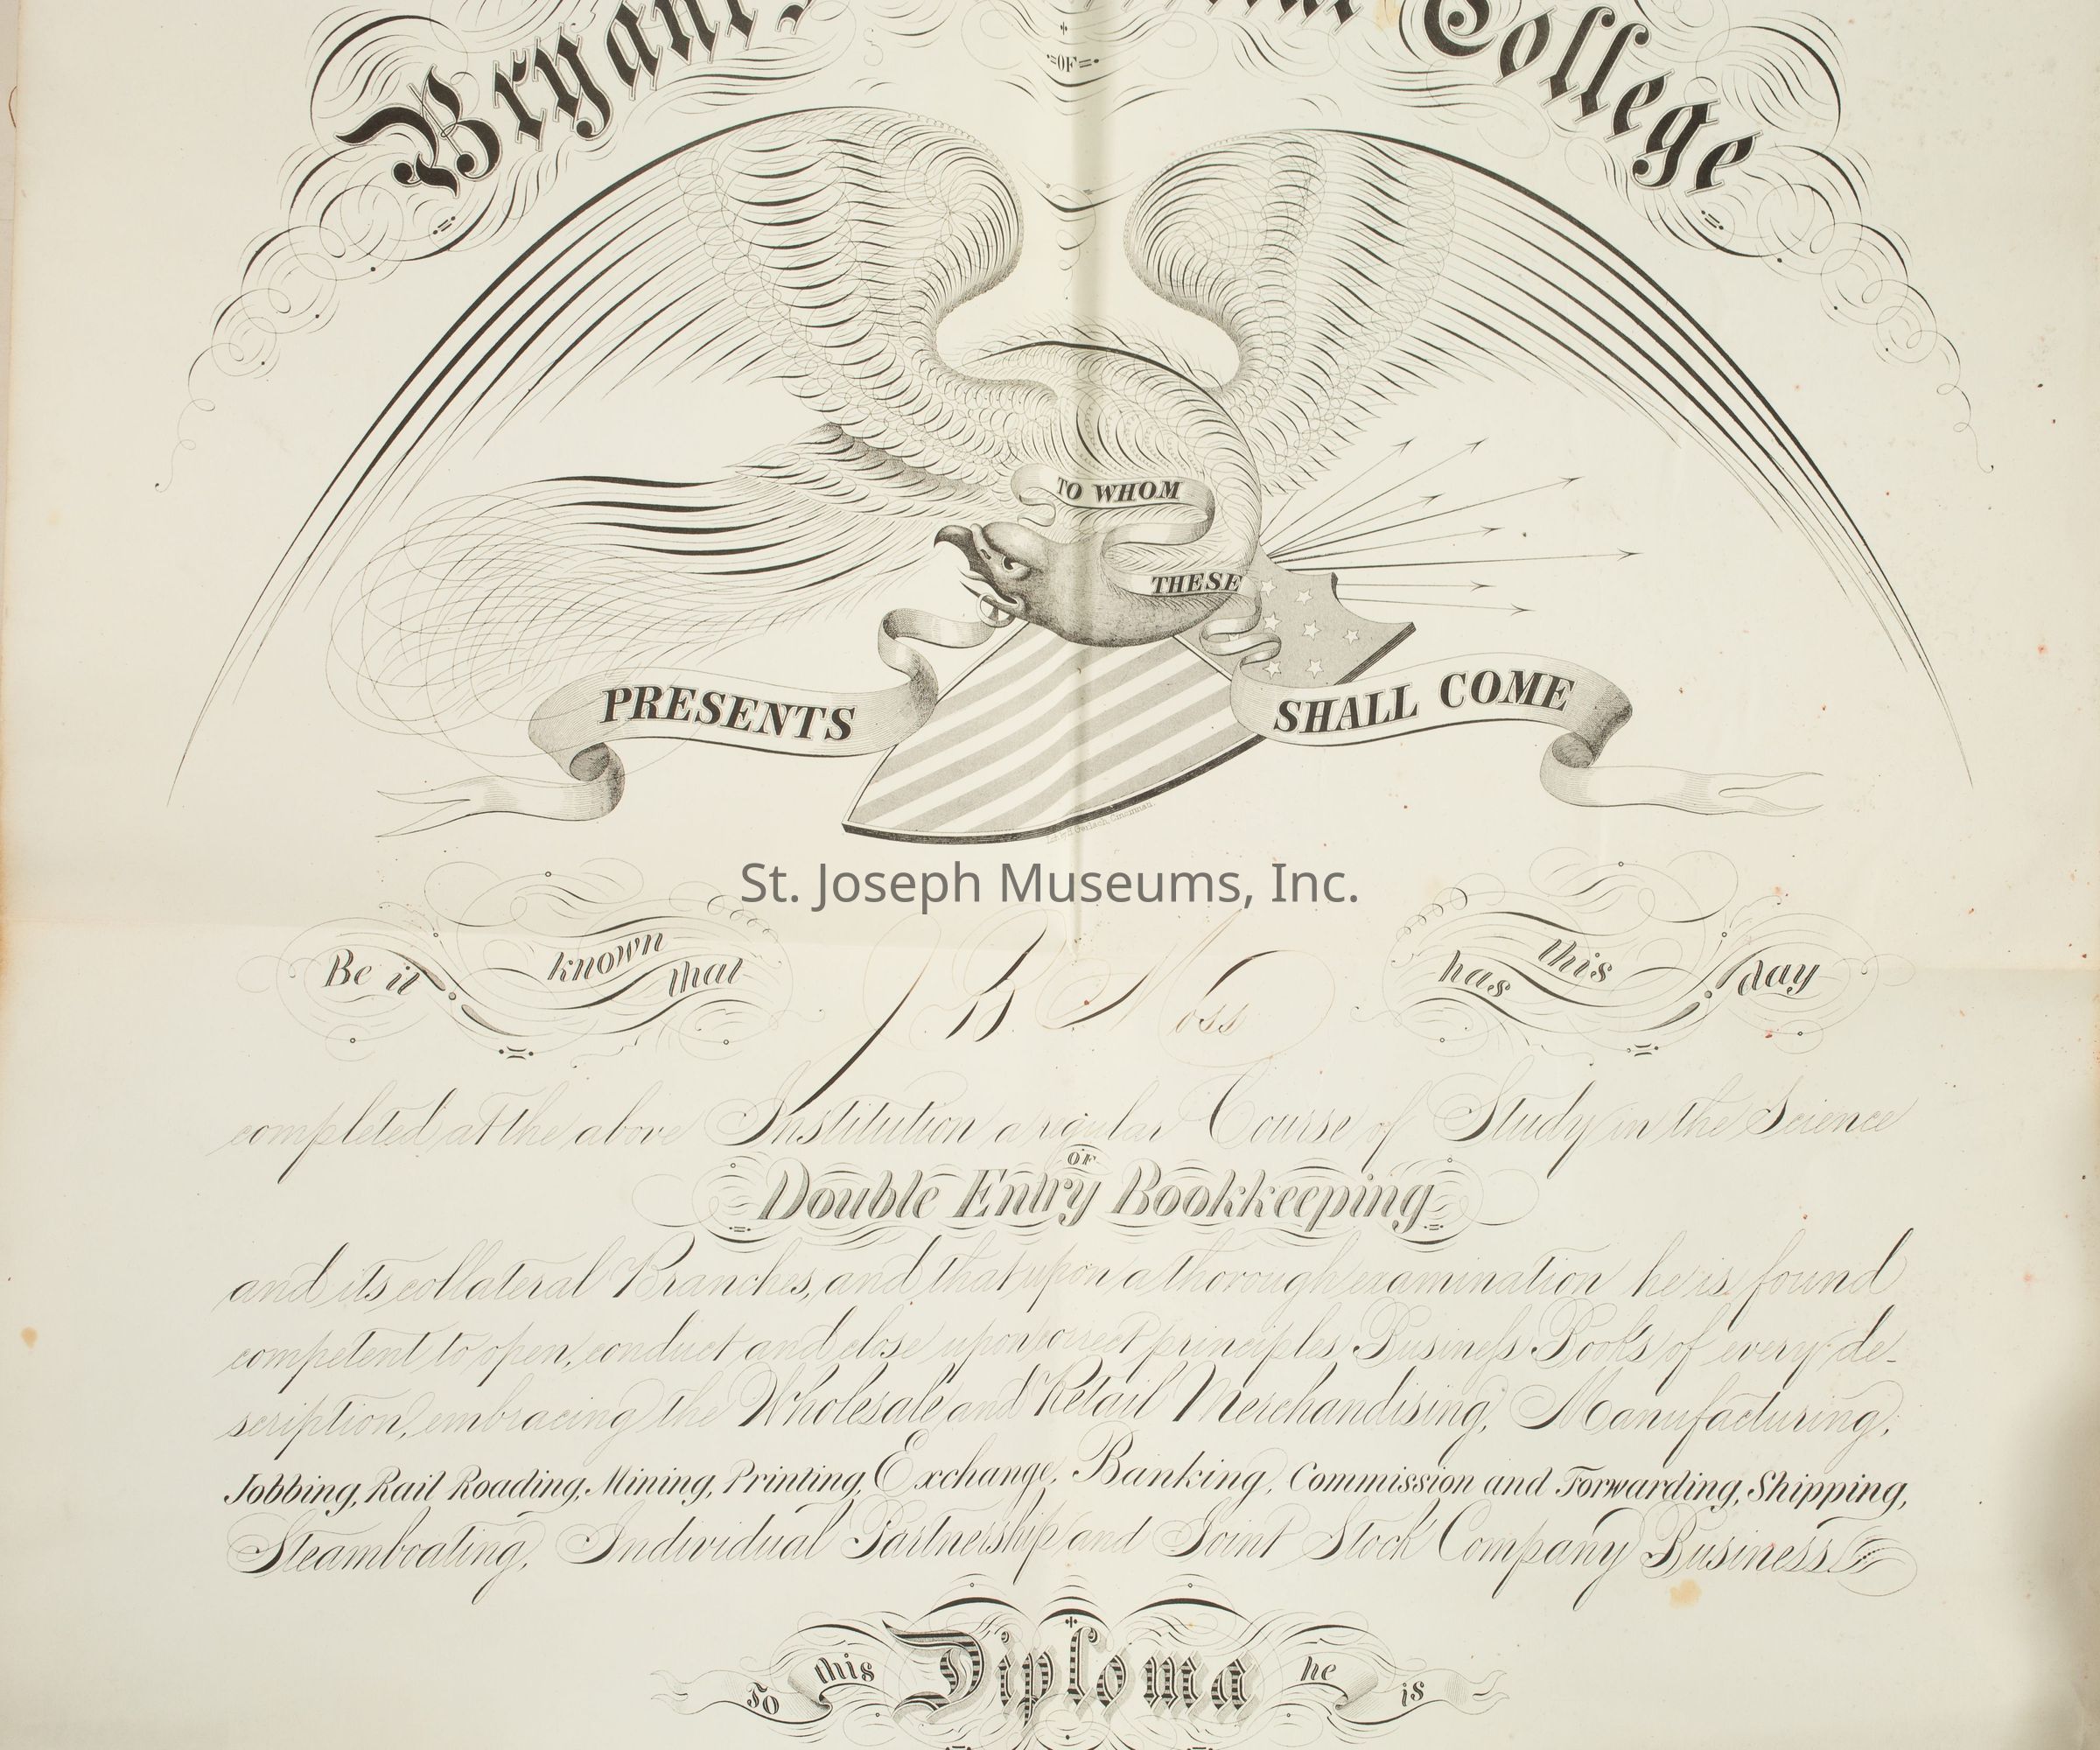 Bryant's College
=OF=
TO WHOM
THESE
PRESENTS SHALL COME
St. Joseph Museums, Inc.
Be it known that J B Moss has this day
completed at the above Institution a regular Course of Study in the Science
OF
Double Entry Bookkeeping
and its collateral Branches, and that upon a thorough examination he is found
competent to open, conduct and close upon correct principles Business Books of every de-
scription, embracing the Wholesale and Retail Merchandising, Manufacturing,
Jobbing, Rail Roading, Mining, Printing, Exchange, Banking, Commission and Forwarding, Shipping,
Steamboating, Individual Partnership and Joint Stock Company Business
To this Diploma he is